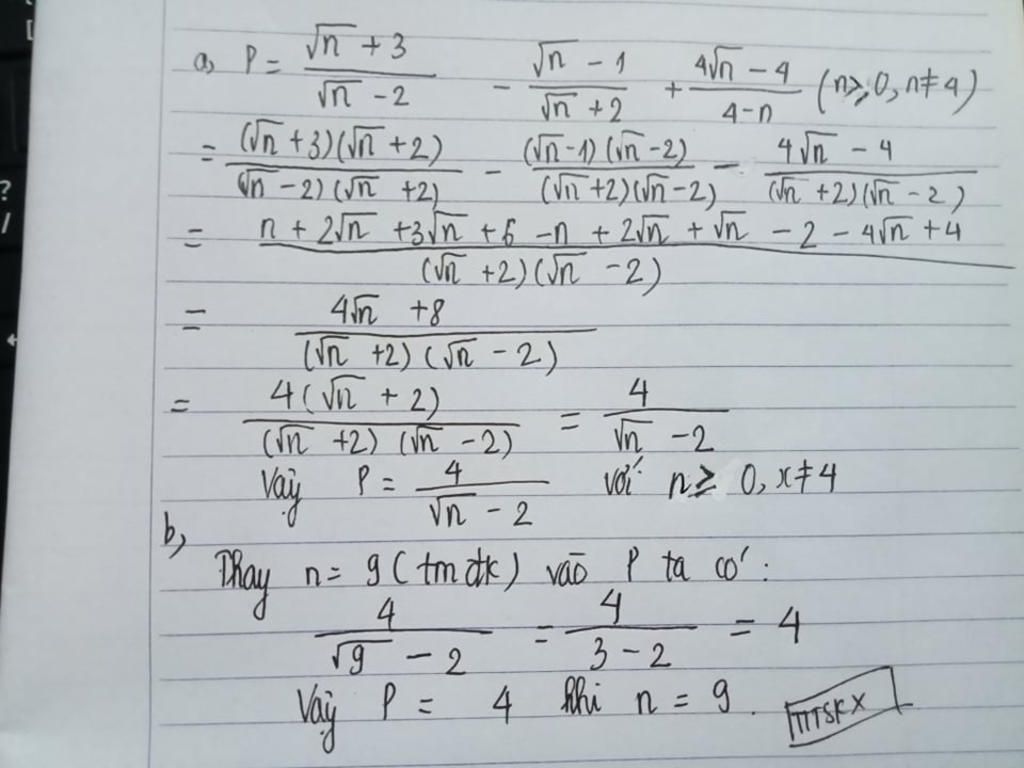 a, P = (√n + 3)/(√n - 2) - (√n - 1)/(√n + 2) + (4√n - 4)/(4 - n) (n ≥ 0, n ≠ 4)
= ((√n + 3)(√n + 2))/((√n - 2)(√n + 2)) - ((√n - 1)(√n - 2))/((√n + 2)(√n - 2)) - (4√n - 4)/((√n + 2)(√n - 2))
= (n + 2√n + 3√n + 6 - n + 2√n + √n - 2 - 4√n + 4)/((√n + 2)(√n - 2))
= (4√n + 8)/((√n + 2)(√n - 2))
= (4(√n + 2))/((√n + 2)(√n - 2)) = 4/(√n - 2)
Vậy P = 4/(√n - 2) với n ≥ 0, x ≠ 4
b,
Thay n = 9 (tmđk) vào P ta có:
4/(√9 - 2) = 4/(3 - 2) = 4
Vậy P = 4 khi n = 9.